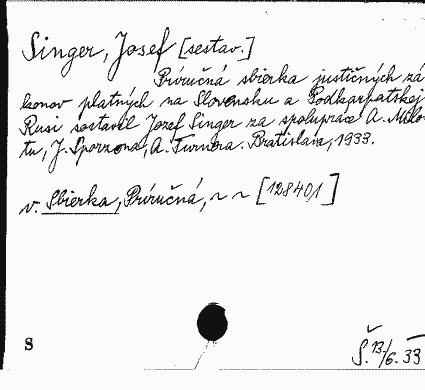 Singer, Josef [sestav.]
Príručná sbierka justičných zá
konov platných na Slovensku a Podkarpatskej
Rusi sostavil Jozef Singer za spolupráce A. Milo-
tu, J. Sporzona, A. Turnera. Bratislava, 1933.
v. Sbierka, Príručná, ~ ~ [128401]
S
Š. 13./6. 33